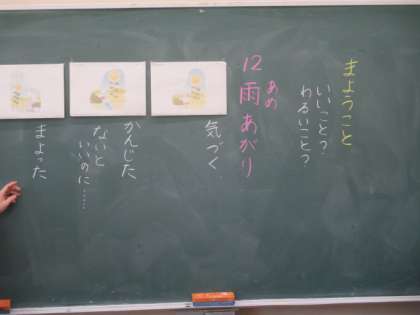 まようこと
いいこと?
わるいこと?
あめ
12 雨あがり
気づく
かんじた
ないと
いいのに……
まよった